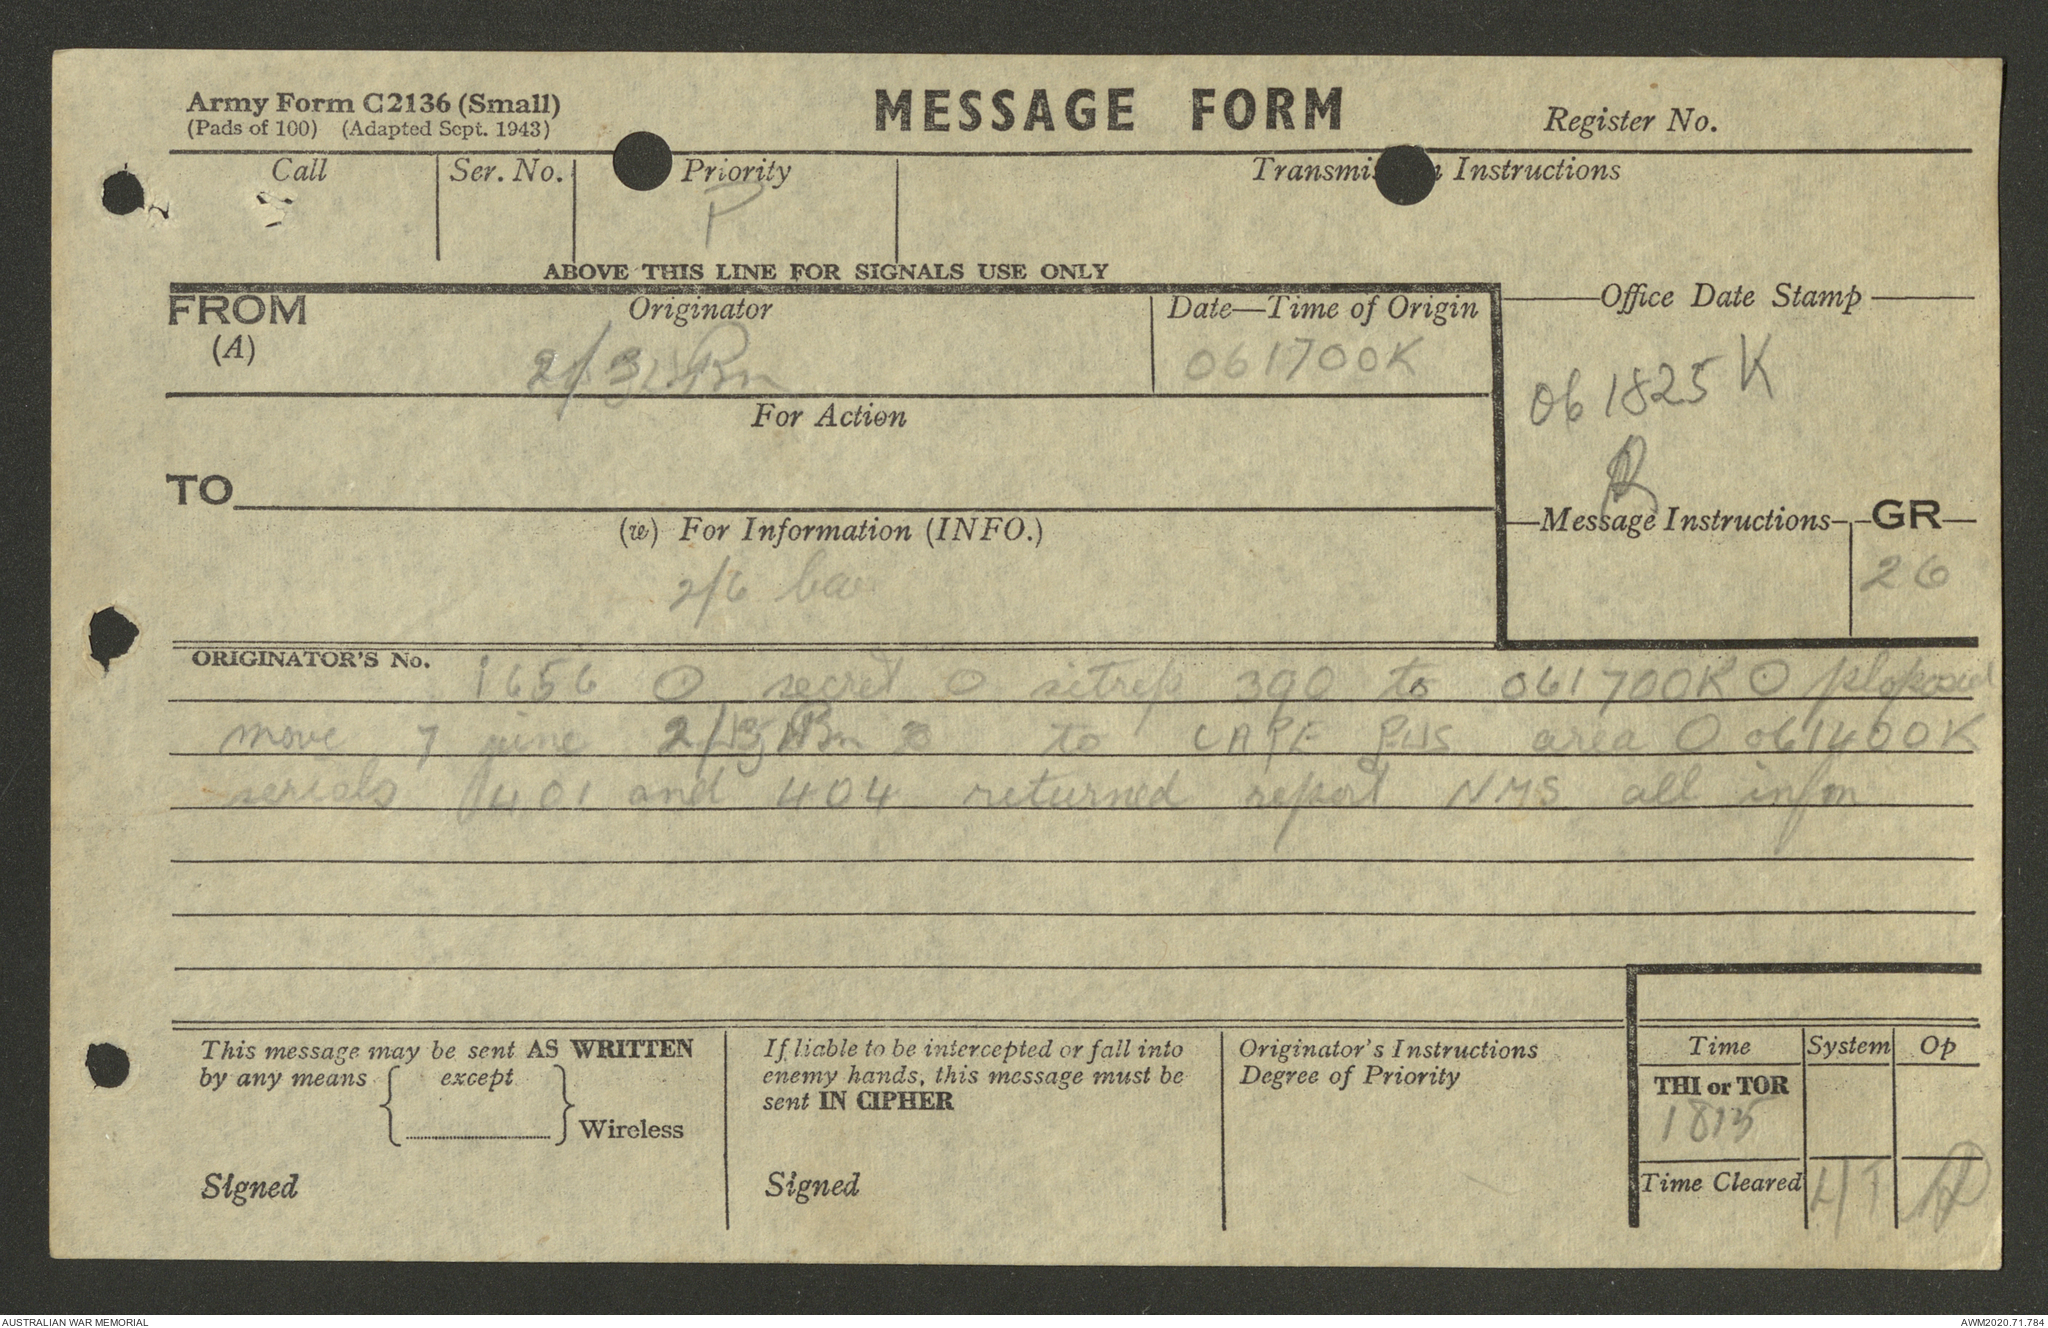 Army Form C2136 (Small)
(Pads of 100) (Adapted Sept. 1943)
MESSAGE FORM
Register No.
Call
Ser. No.
Priority
P
Transmi n Instructions
ABOVE THIS LINE FOR SIGNALS USE ONLY
FROM
(A)
Originator
2/3 Bn
Date—Time of Origin
061700K
Office Date Stamp
061825K
For Action
TO
(w) For Information (INFO.)
2/6
Message Instructions
GR
26
ORIGINATOR'S No.
1656 O secret O sitrep 390 to 061700K O proposed
move 7 june 2/3 Bn to CAPE area O 061400K
serials 401 and 404 returned report NMS all infm
This message may be sent AS WRITTEN
by any means { except }
Wireless
Signed
If liable to be intercepted or fall into
enemy hands, this message must be
sent IN CIPHER
Signed
Originator's Instructions
Degree of Priority
Time System Op
THI or TOR
1815
Time Cleared
AUSTRALIAN WAR MEMORIAL
AWM2020.71.784